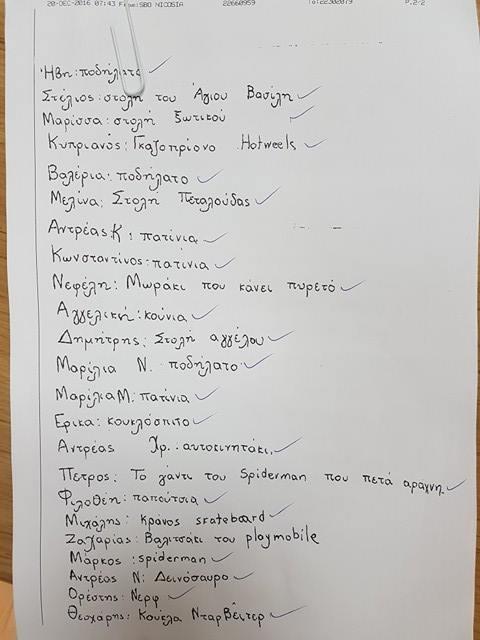 20-DEC-2016 07:43 From:SBO NICOSIA 22660959 To:22302079 P.2/2
Ήβη: ποδήλατο
Στέλιος: στολή του Άγιου Βασίλη
Μαρίσσα: στολή ξωτικού
Κυπριανός: Γκαζοπρίονο Hotweels
Βαλέρια: ποδήλατο
Μελίνα: Στολή Πεταλούδας
Αντρέας Κ: πατίνια
Κωνσταντίνος: πατίνια
Νεφέλη: Μωράκι που κάνει πυρετό
Αγγελική: κούνια
Δημήτρης: Στολή αγγέλου
Μαρίλια Ν. ποδήλατο
Μαρίλια Μ: πατίνια
Έρικα: κουκλόσπιτο
Αντρέας Χρ.: αυτοκινητάκι
Πέτρος: Το γάντι του Spiderman που πετά αραχνη
Φιλοθέη: παπούτσια
Μιχάλης: κράνος skateboard
Ζαχαρίας: Βαλιτσάκι του playmobile
Μάρκος: spiderman
Αντρέας Ν: Δεινόσαυρο
Ορέστης: Νερφ
Θεοχάρης: Κουέλα Νταρ Βέιτερ